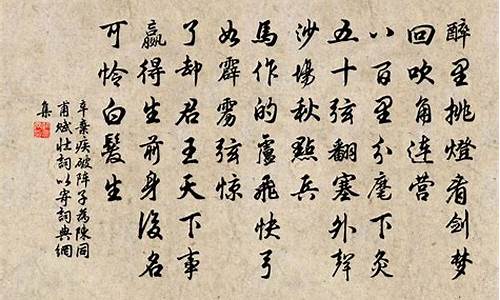 醉里挑燈看劍梦
回吹角连营
八百里分麾下炙
五十弦翻塞外聲
沙場秋點兵
馬作的盧飛快弓
如霹靂弦惊
了却君王天下事
赢得生前身後名
可怜白髮生
辛棄疾破阵子為陳同
甫賦壮詞以寄詞典網
集